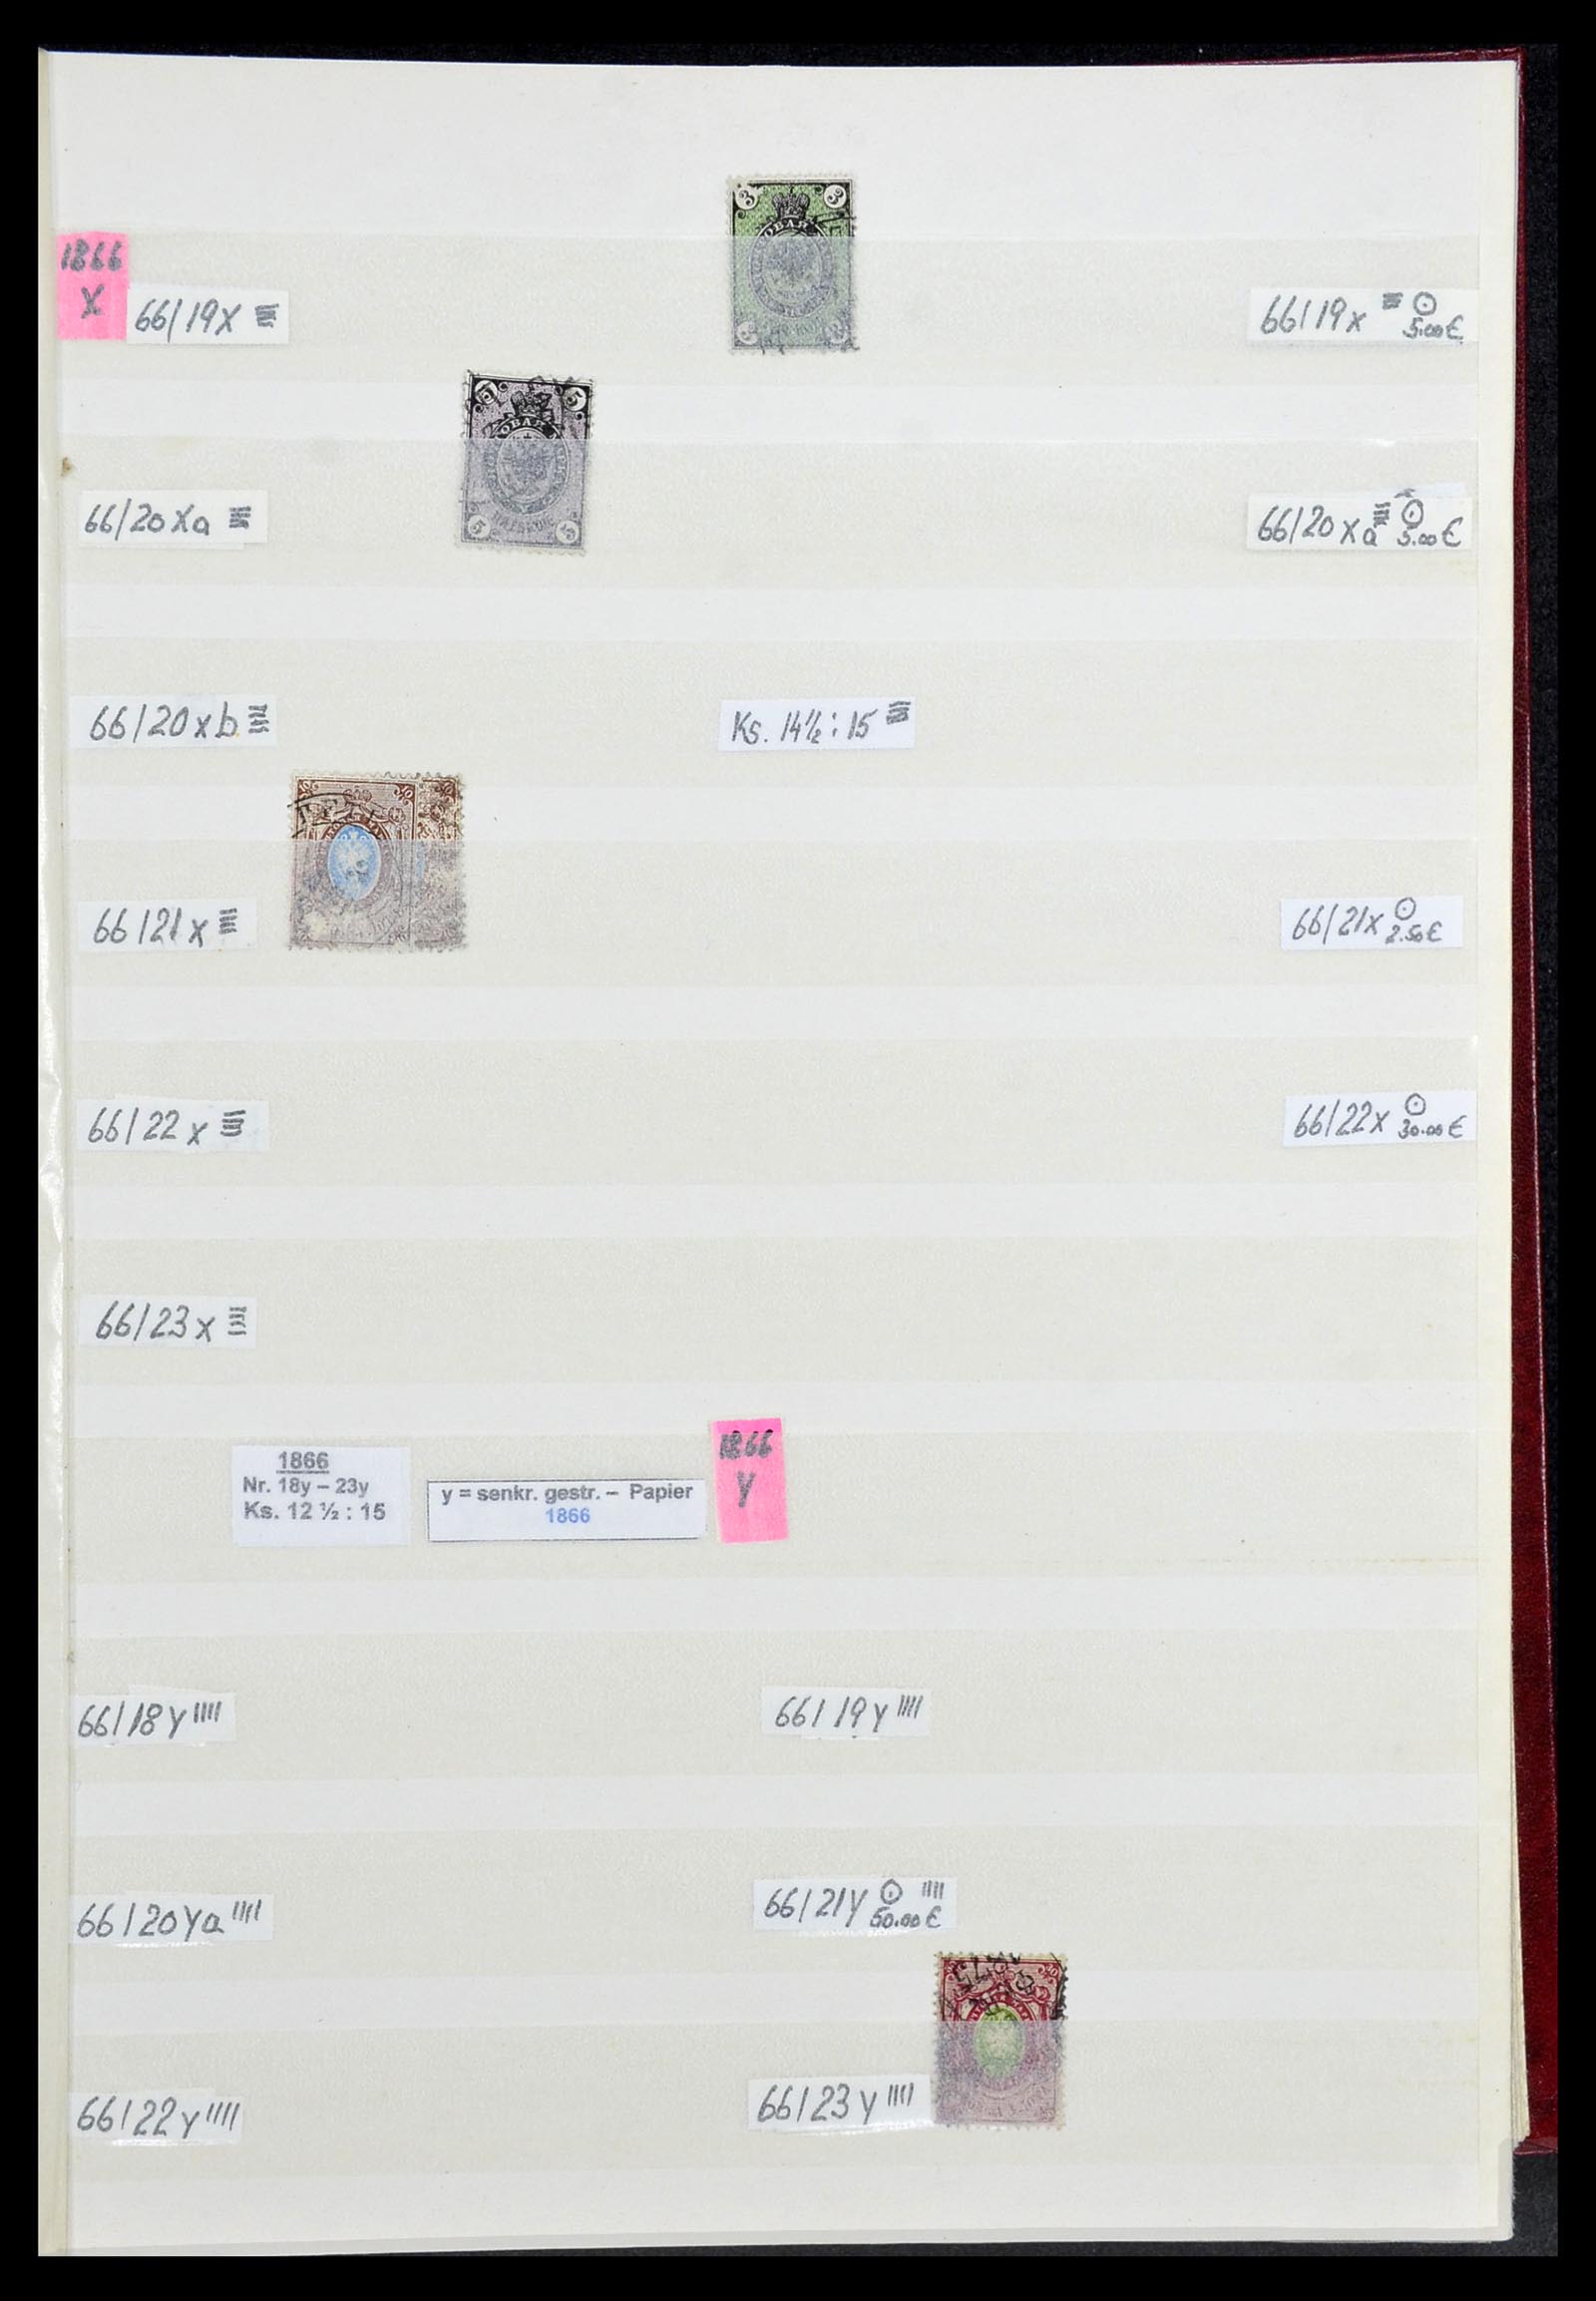 3 3
1866
X
66/19X
66/19x ⊙
5.00€
5 5
ОВАЯ
5 5
66/20Xa
66/20xa ⊙
5.00€
66/20xb
Ks. 14½:15
66/21x
66/21x ⊙
2.50€
66/22x
66/22x ⊙
30.00€
66/23x
1866
Nr. 18y – 23y
Ks. 12 ½ : 15
y = senkr. gestr. – Papier
1866
1866
y
66/18y
66/19y
66/20ya
66/21y ⊙
50.00€
66/22y
66/23y